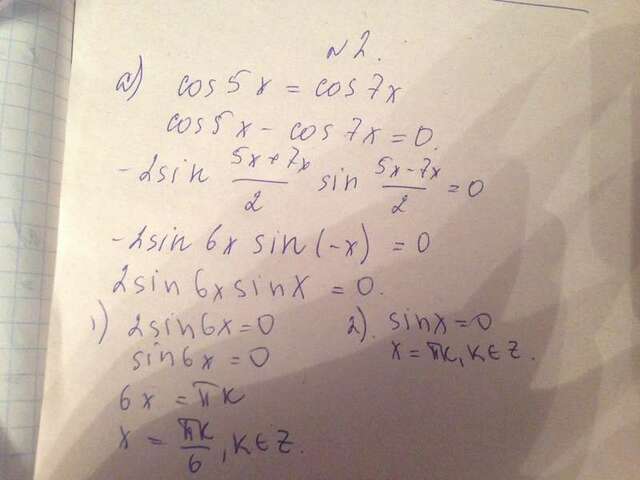 N2.
а) cos 5x = cos 7x
cos 5x - cos 7x = 0.
-2 sin (5x+7x)/2 sin (5x-7x)/2 = 0
-2 sin 6x sin (-x) = 0
2 sin 6x sin x = 0.
1) 2 sin 6x = 0 2). sin x = 0
sin 6x = 0 x = πk, k∈Z.
6x = πk
x = πk/6, k∈Z.